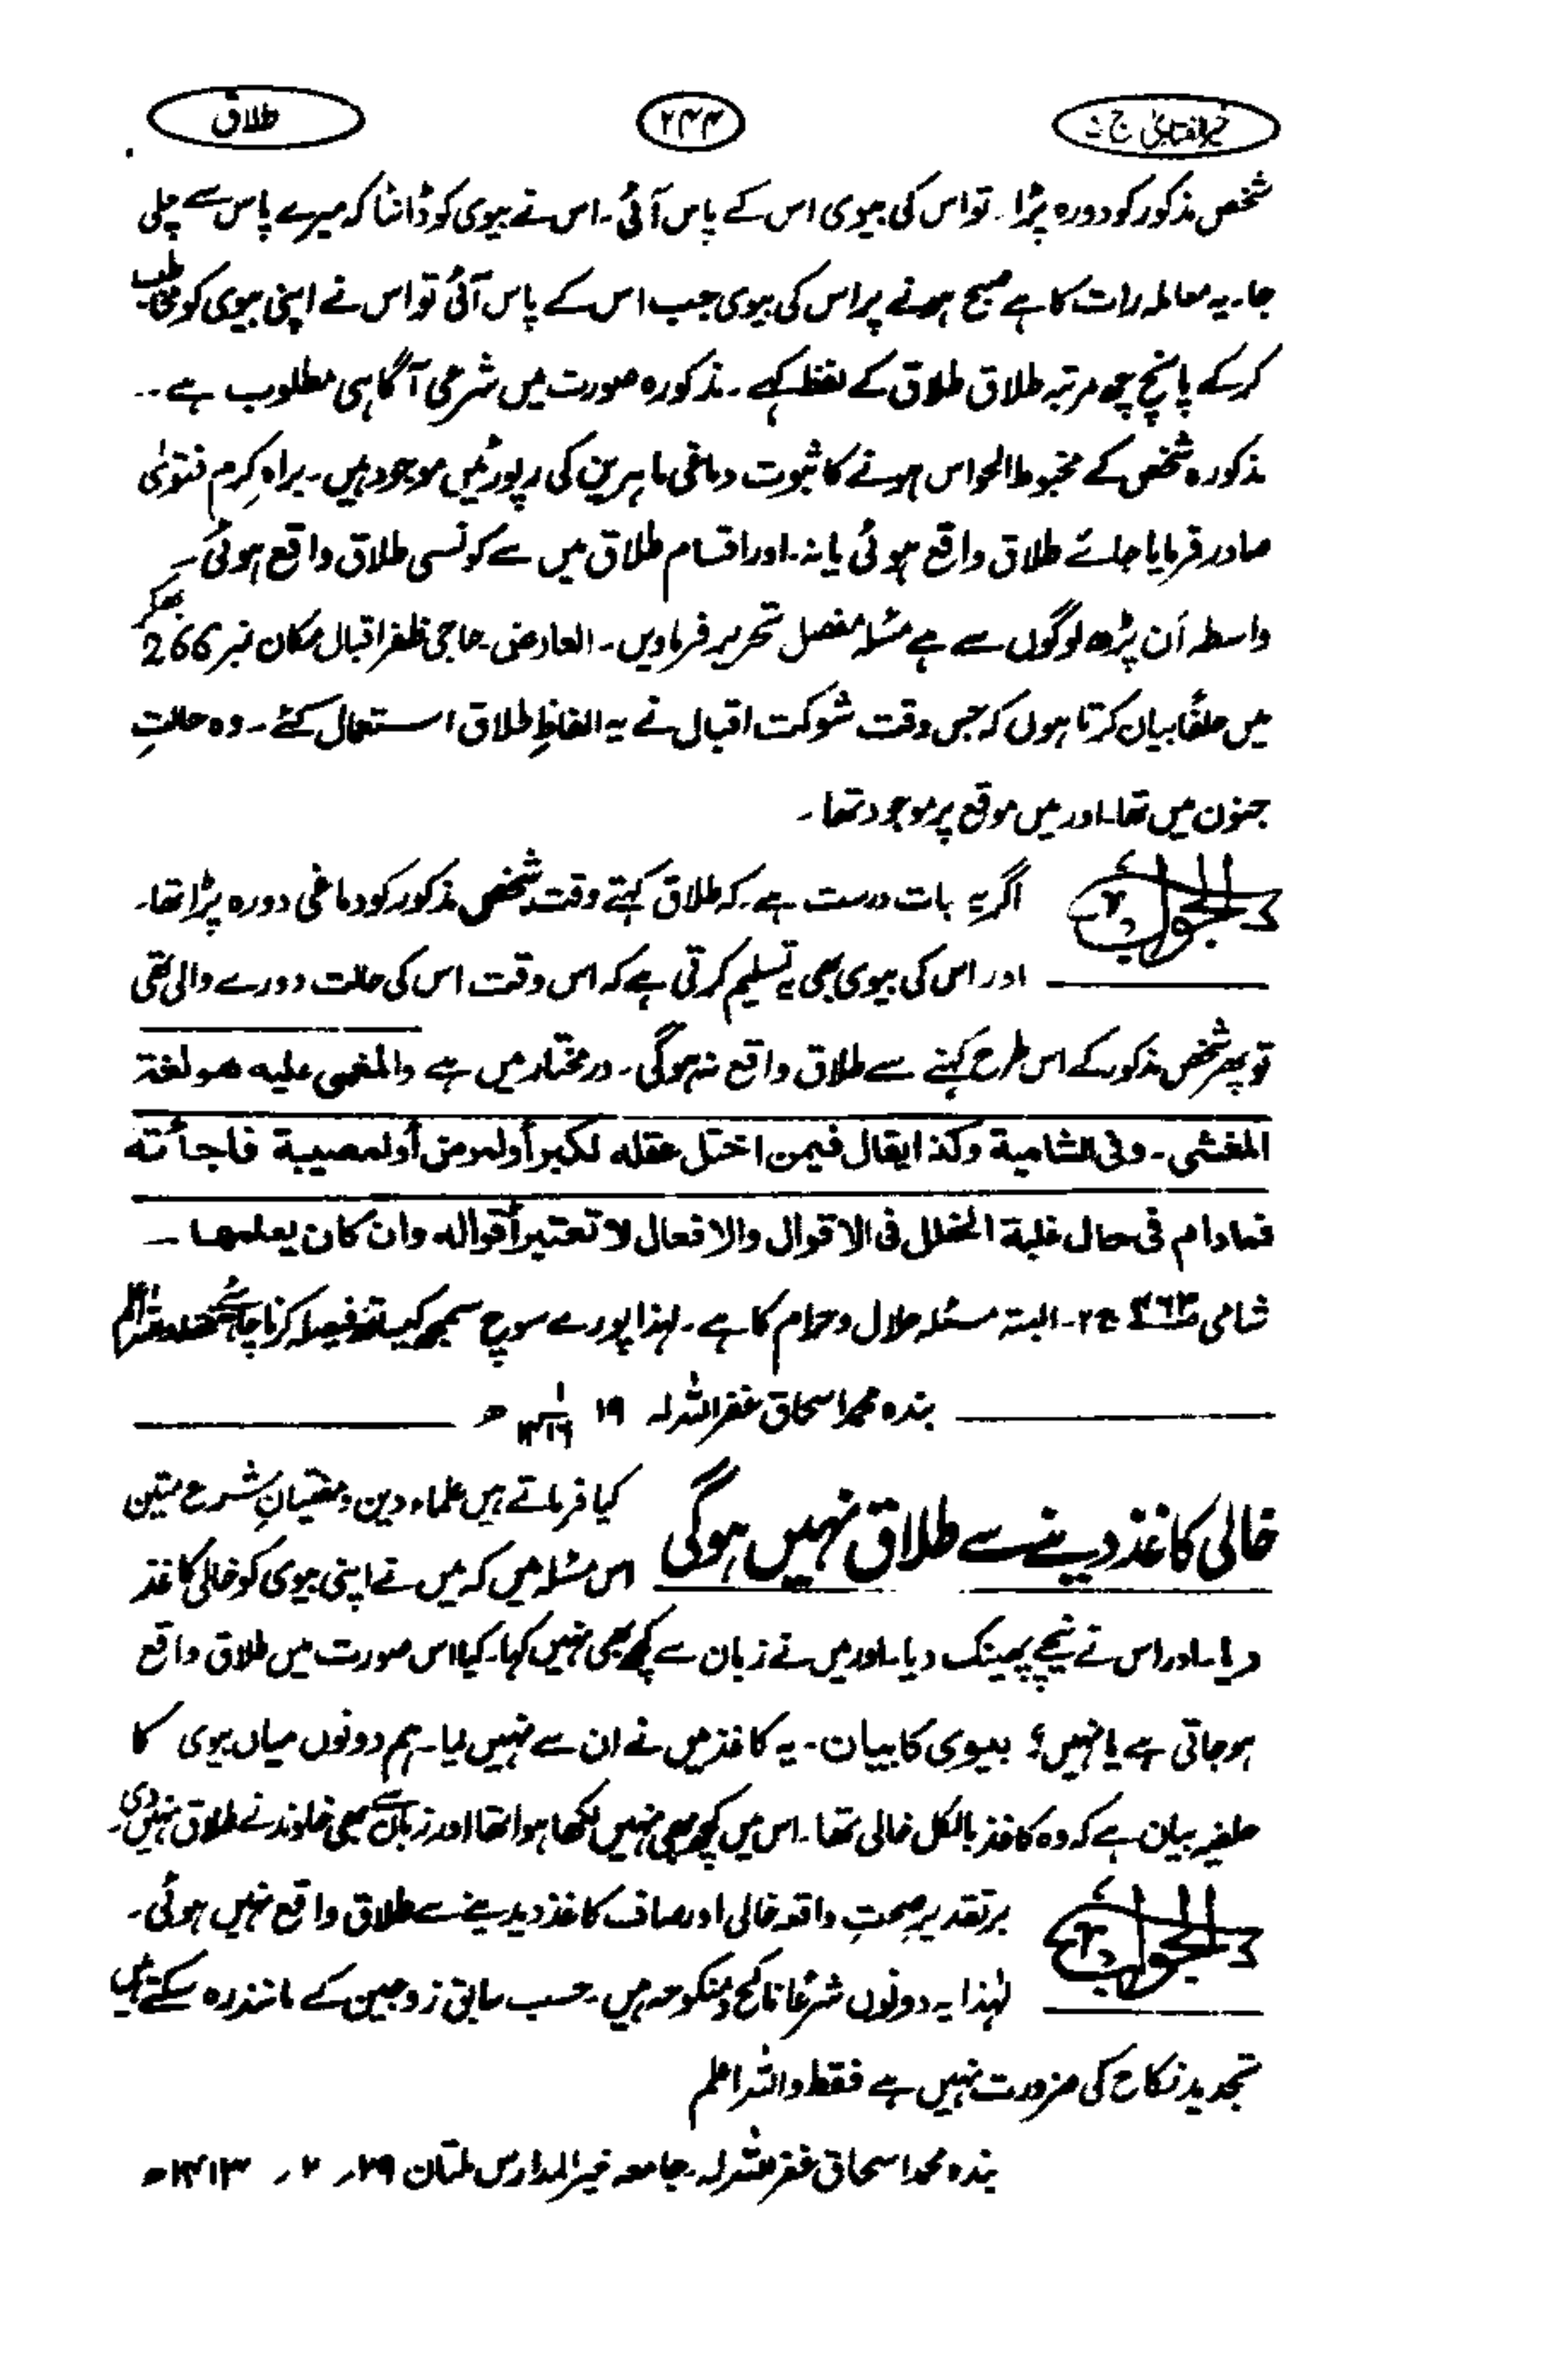 خیر الفتاویٰ ج ۵
۲۴۴
طلاق
شخص مذکور کو دورہ پڑا۔ تو اس کی بیوی اس کے پاس آئی۔ اس نے بیوی کو ڈانٹا کہ میرے پاس سے چلی
جا۔ یہ معاملہ رات کا ہے صبح ہونے پر اس کی بیوی جب اس کے پاس آئی تو اس نے اپنی بیوی کو مخاطب
کرکے پانچ چھ مرتبہ طلاق طلاق کے لفظ کہے۔ مذکورہ صورت میں شرعی آگاہی مطلوب ہے۔۔
مذکورہ شخص کے مخبوط الحواس ہونے کا ثبوت دماغی ماہرین کی رپورٹیں موجود ہیں۔ براہِ کرم فتویٰ
صادر فرمایا جائے طلاق واقع ہوئی یا نہ۔ اور اقسام طلاق میں سے کونسی طلاق واقع ہوئی۔
واسطہ اَن پڑھ لوگوں سے ہے مسئلہ مفصل تحریر فرماویں۔ العارض۔ حاجی ظفر اقبال مکان نمبر 266 بھکر
میں حلفاً بیان کرتا ہوں کہ جس وقت شوکت اقبال نے یہ الفاظِ طلاق استعمال کئے۔ وہ حالتِ
جنون میں تھا۔ اور میں موقع پر موجود تھا۔
الجواب
اگر یہ بات درست ہے۔ کہ طلاق کہتے وقت شخص مذکور کو دماغی دورہ پڑا تھا۔
اور اس کی بیوی بھی یہ تسلیم کرتی ہے کہ اس وقت اس کی حالت دورے والی تھی
تو پھر شخص مذکور کے اس طرح کہنے سے طلاق واقع نہ ہوگی۔ درمختار میں ہے والمغمی علیه هو لغة
المغشی۔ وفی الشامیة وکذا یقال فیمن اختل عقله لکبر أو لمرض أو لمصیبة فاجأته
فمادام فی حال غلبة الخلل فی الاقوال والافعال لا تعتبر أقواله وان کان یعلمها۔
شامی ص۴۶۳ ج۲۔ البتہ مسئلہ حلال و حرام کا ہے۔ لہذا پورے سوچ سمجھ کیساتھ فیصلہ کرنا چاہئے فقط واللہ اعلم
بندہ محمد اسحاق غفر اللہ لہ ۱۹ ۱ ۱۴۱۶ ھ
خالی کاغذ دینے سے طلاق نہیں ہوگی
کیا فرماتے ہیں علماء دین ومفتیانِ شرع متین
اس مسئلہ میں کہ میں نے اپنی بیوی کو خالی کاغذ
دیا۔ اور اس نے نیچے پھینک دیا۔ اور میں نے زبان سے کچھ بھی نہیں کہا۔ کیا اس صورت میں طلاق واقع
ہوجاتی ہے یا نہیں؟ بیوی کا بیان۔ یہ کاغذ میں نے ان سے نہیں لیا۔ ہم دونوں میاں بیوی کا
حلفیہ بیان ہے کہ وہ کاغذ بالکل خالی تھا۔ اس میں کچھ بھی نہیں لکھا ہوا تھا اور زبان سے بھی خاوند نے طلاق نہیں دی۔
الجواب
برتقدیر صحتِ واقعہ خالی اور صاف کاغذ دیدینے سے طلاق واقع نہیں ہوئی۔
لہٰذا یہ دونوں شرعاً ناکح و منکوحہ ہیں۔ حسب سابق زوجین کے مانند رہ سکتے ہیں
تجدید نکاح کی ضرورت نہیں ہے فقط واللہ اعلم
بندہ محمد اسحاق غفر اللہ لہ۔ جامعہ خیر المدارس ملتان ۲۹؍ ۲؍ ۱۴۱۳ھ